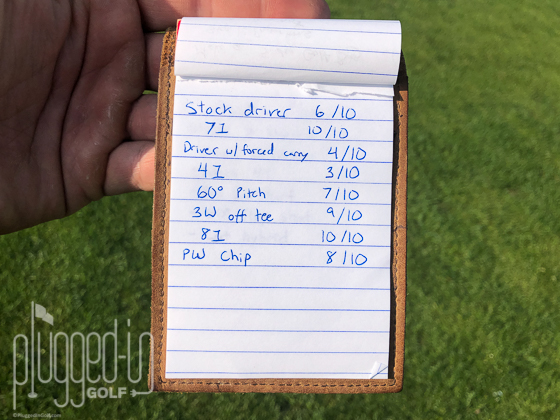 Stock driver 6/10
7I 10/10
Driver w/forced carry 4/10
4I 3/10
60° Pitch 7/10
3W off tee 9/10
8I 10/10
PW Chip 8/10
plugged-in
GOLF